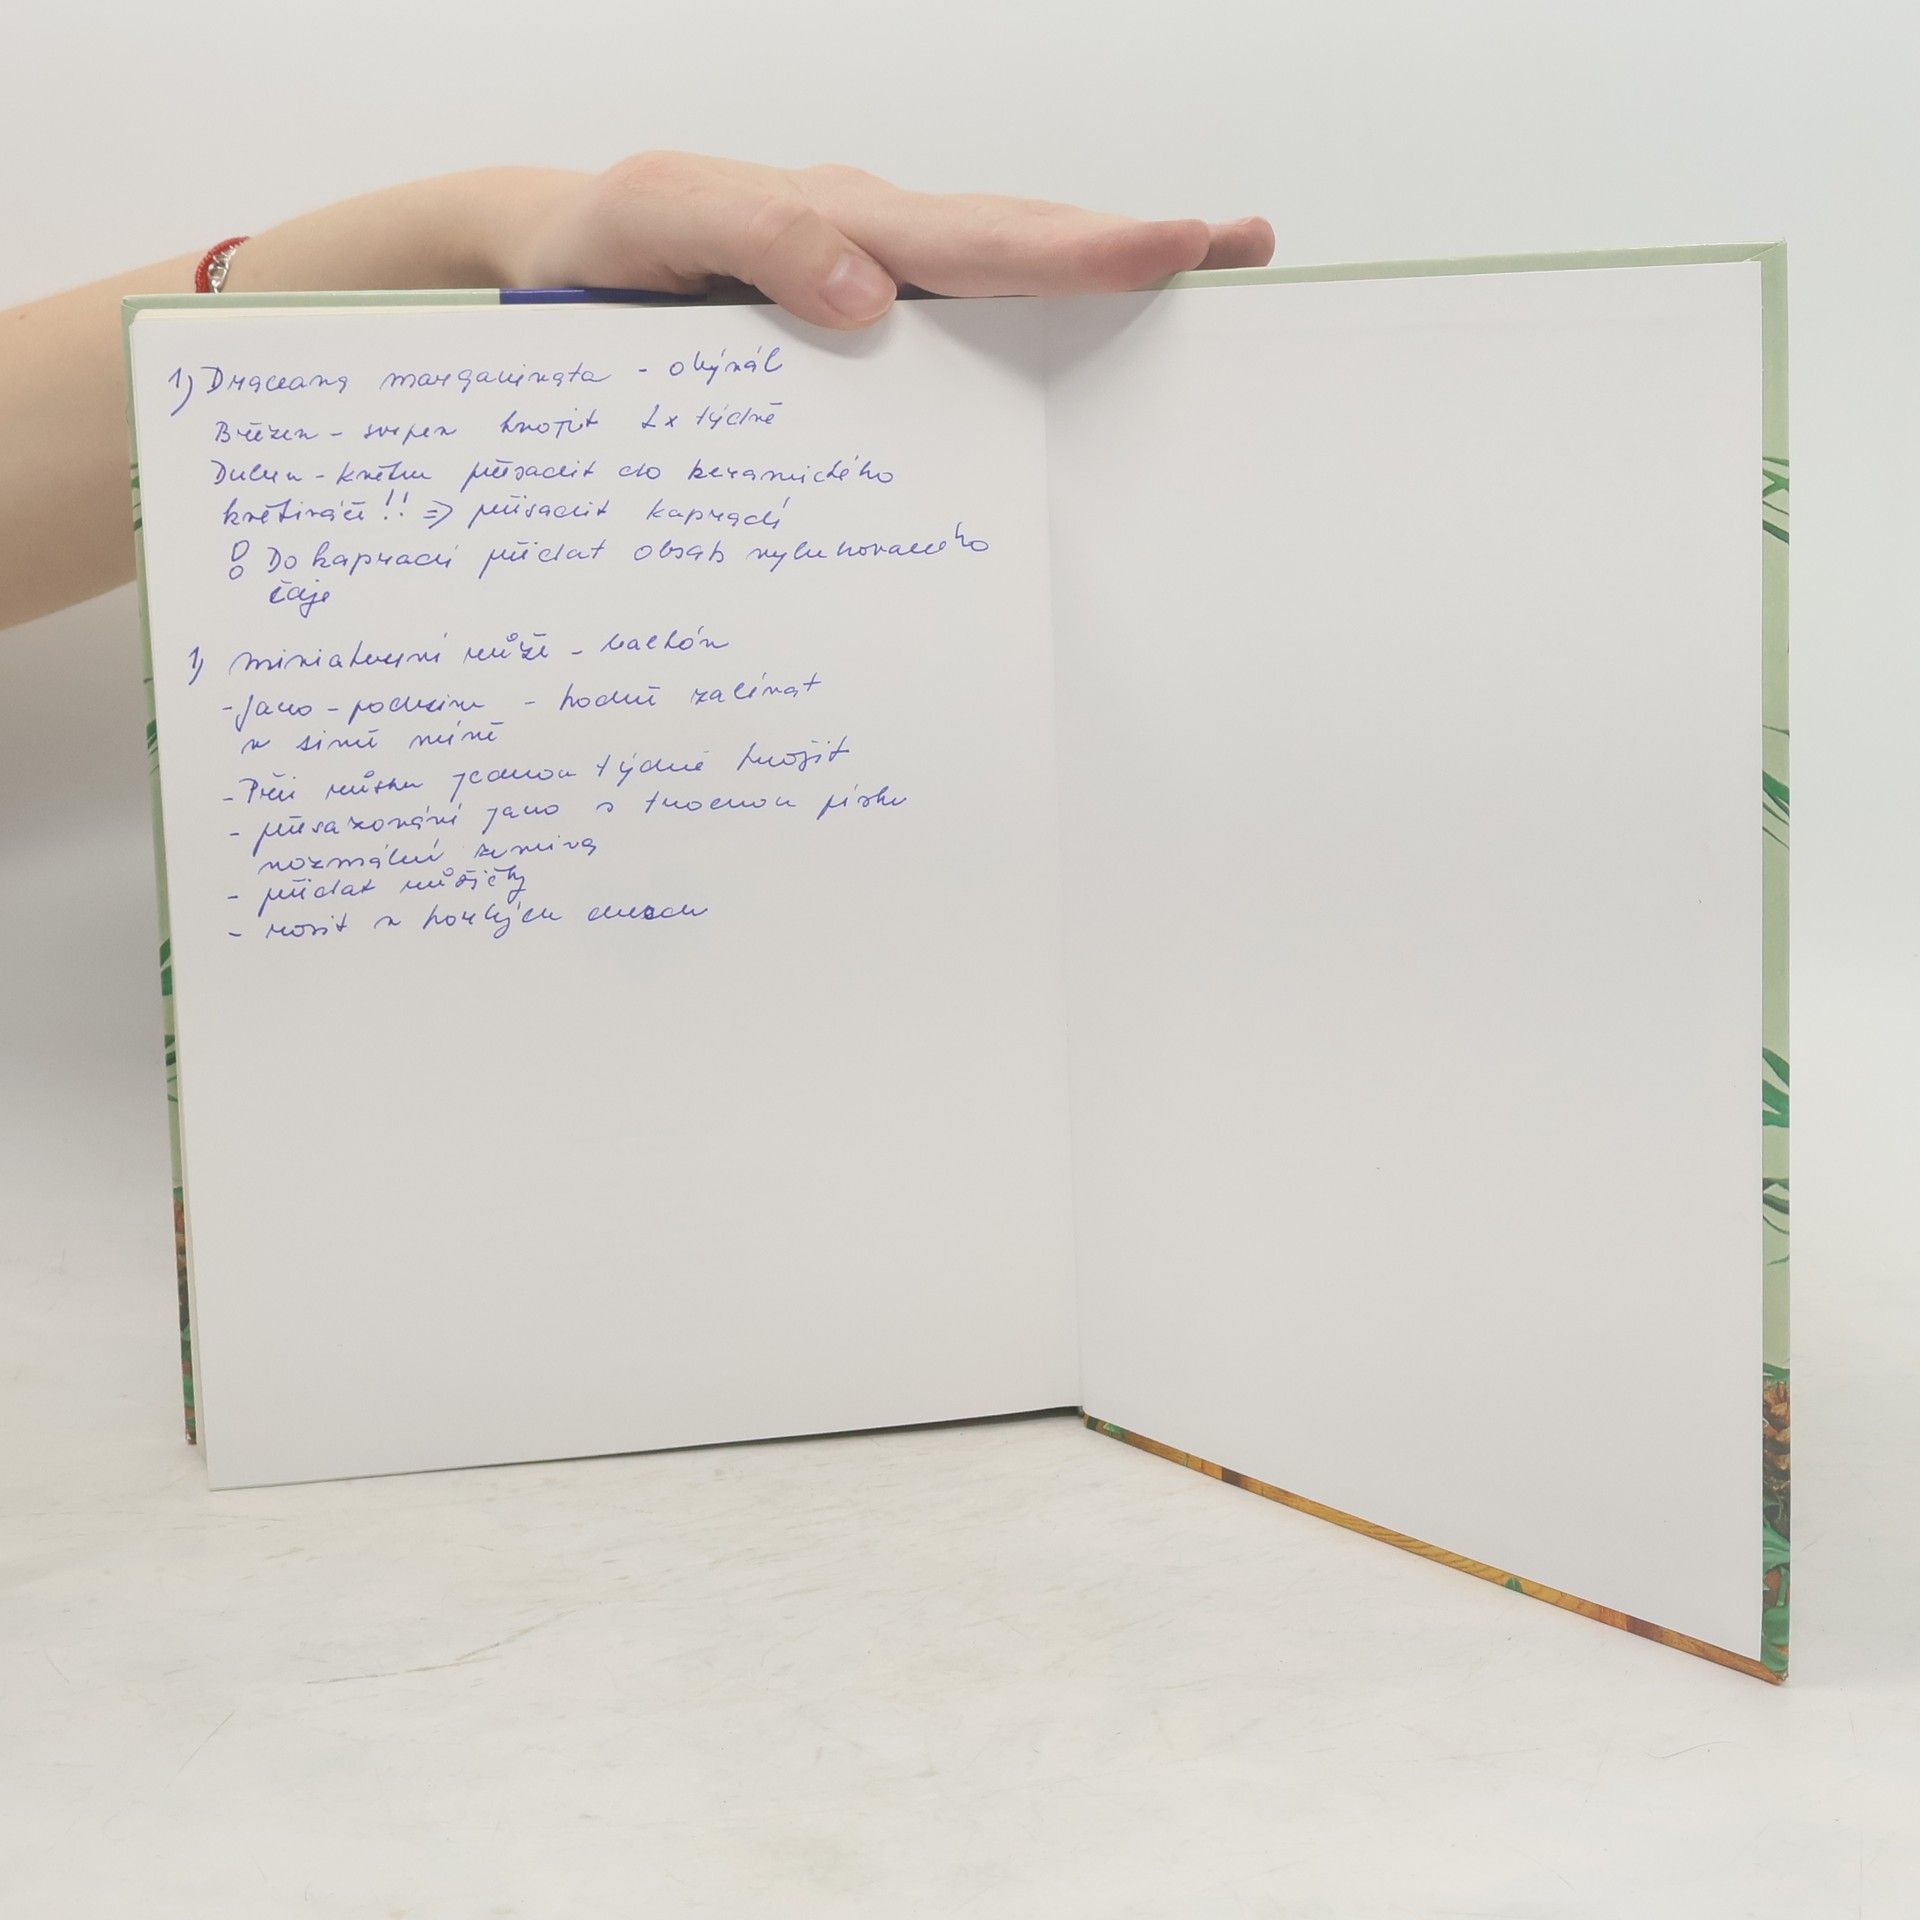 1) Draceana margavinata - obývák
Březen - srpen hnojit 1x týdně
Duben - květen přesadit do keramického
květináče!! => přisadit kapradí
Do kapradí přidat obsah vyluhovaného
čaje
1) miniaturní růže - balkón
- Jaro - podzim - hodně zalévat
v zimě méně
- Při růstu jednou týdně hnojit
- přesazování jaro s trochou písku
normální zemina
- přidat růžičky
- rosit v horkých dnech